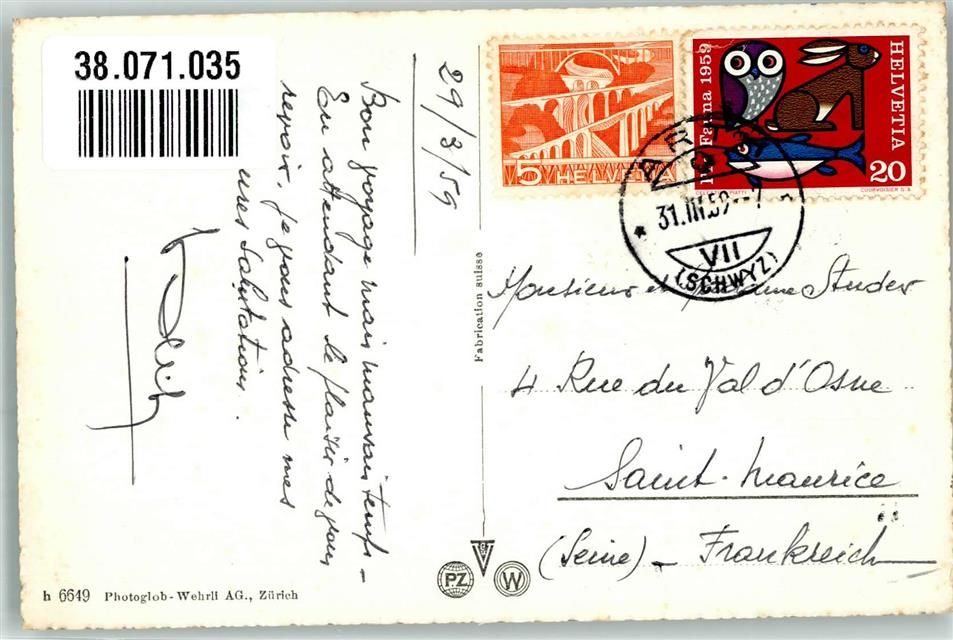 38.071.035
29/3/59
Bon voyage mais mauvais temps -
En attendant le plaisir de vous
revoir, je vous adresse mes
meilleures Salutations.
h 6649 Photoglob-Wehrli AG., Zürich
Fabrication suisse
PZ
W
5 HELVETIA
Fauna 1959
HELVETIA
20
CELESTINO PIATTI
COURVOISIER S.A.
31.III.59
VII
(SCHWYZ)
Monsieur et Madame Studer
4 Rue du Val d'Osne
Saint-Maurice
(Seine) - Frankreich